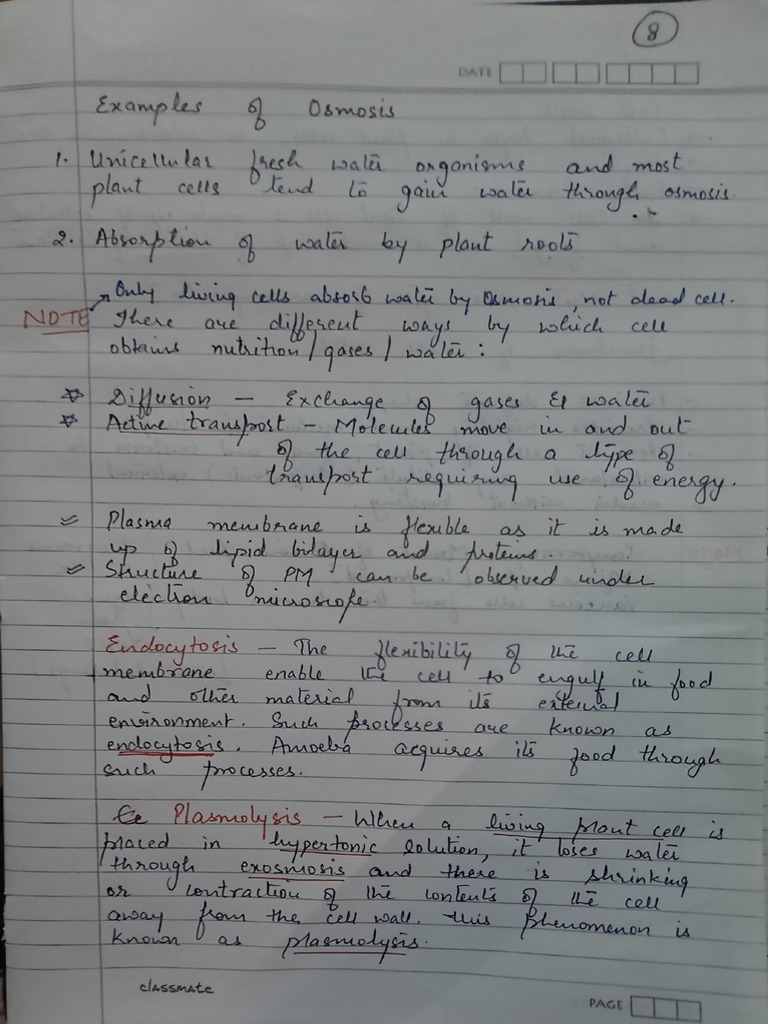 8
DATE
Examples of Osmosis
1. Unicellular fresh water organisms and most
plant cells tend to gain water through osmosis.
2. Absorption of water by plant roots
Only living cells absorb water by Osmosis, not dead cell.
NOTE There are different ways by which cell
obtains nutrition/gases/water:
☆ Diffusion – Exchange of gases & water
☆ Active transport – Molecules move in and out
of the cell through a type of
transport requiring use of energy.
Plasma membrane is flexible as it is made
up of lipid bilayer and proteins.
Structure of PM can be observed under
electron microscope.
Endocytosis – The flexibility of the cell
membrane enable the cell to engulf in food
and other material from its external
environment. Such processes are known as
endocytosis. Amoeba acquires its food through
such processes.
Plasmolysis – When a living plant cell is
placed in hypertonic solution, it loses water
through exosmosis and there is shrinking
or contraction of the contents of the cell
away from the cell wall. This phenomenon is
known as plasmolysis.
classmate
PAGE